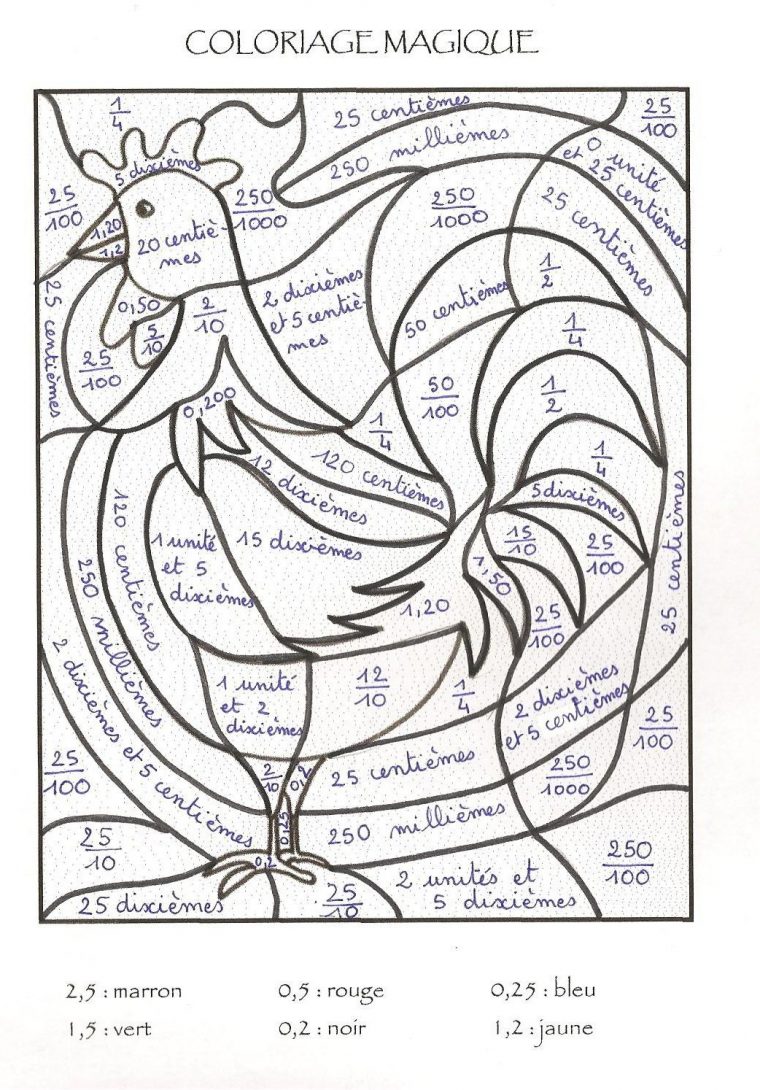 COLORIAGE MAGIQUE
1/4
25 centièmes
25/100
250 millièmes
0 unité
et 25 centièmes
5 dixièmes
25/100
250/1000
250/1000
25 centièmes
1,20
1,2
20 centiè-
mes
1/2
25 centièmes
0,50
2/10
2 dixièmes
et 5 centiè-
mes
50 centièmes
5/10
1/4
25/100
0,200
50/100
1/2
1/4
120 centièmes
12 dixièmes
1/4
5 dixièmes
25 centièmes
120 centièmes
1 unité
et 5
dixièmes
15 dixièmes
15/10
25/100
1,50
1,20
25/100
250 millièmes
2 dixièmes et 5 centièmes
1 unité
et 2
dixièmes
12/10
1/4
2 dixièmes
et 5 centièmes
25/100
25/100
2/10
0,2
25 centièmes
250/1000
0,125
250 millièmes
25/10
0,2
250/100
25 dixièmes
25/10
2 unités et
5 dixièmes
2,5 : marron
0,5 : rouge
0,25 : bleu
1,5 : vert
0,2 : noir
1,2 : jaune